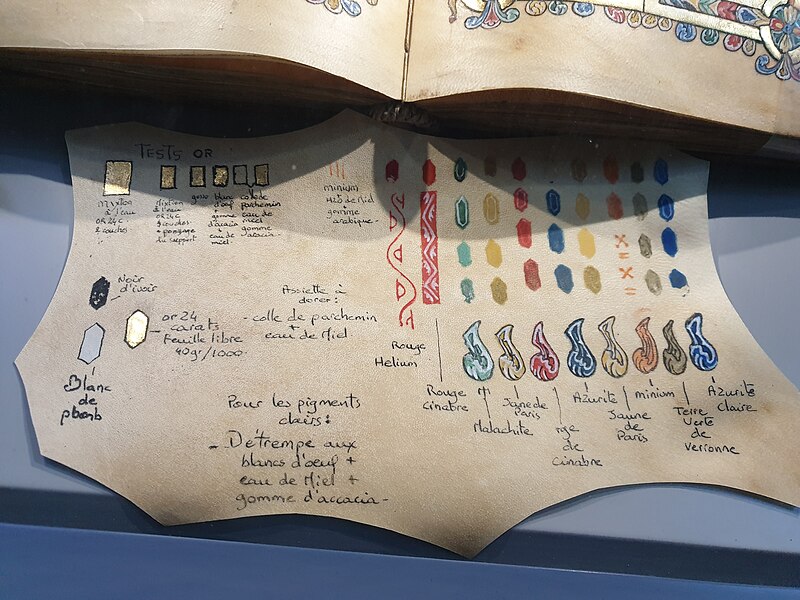 TESTS OR
mixtion
à l'eau
OR 24c
2 couches
mixtion
à l'eau
OR 24c
2 couches
+ ponçage
du support
gesso
blanc
d'oeuf
gomme
d'acacia
+
eau de
miel
colle de
parchemin
eau de
miel
gomme
d'acacia
minium
H2O de Miel
gomme
arabique
Noir
d'ivoir
or 24
carats
Feuille libre
40gr/1000
Blanc
de
plomb
Assiette à
dorer:
- colle de parchemin
+
eau de Miel
Pour les pigments
clairs:
- Détrempe aux
blancs d'oeuf +
eau de Miel +
gomme d'accacia -
Rouge
Helium
Rouge
cinabre
Malachite
Jaune de
Paris
rge
de
Cinabre
Azurite
Jaune
de
Paris
minium
Terre
Verte
de
Verronne
Azurite
claire